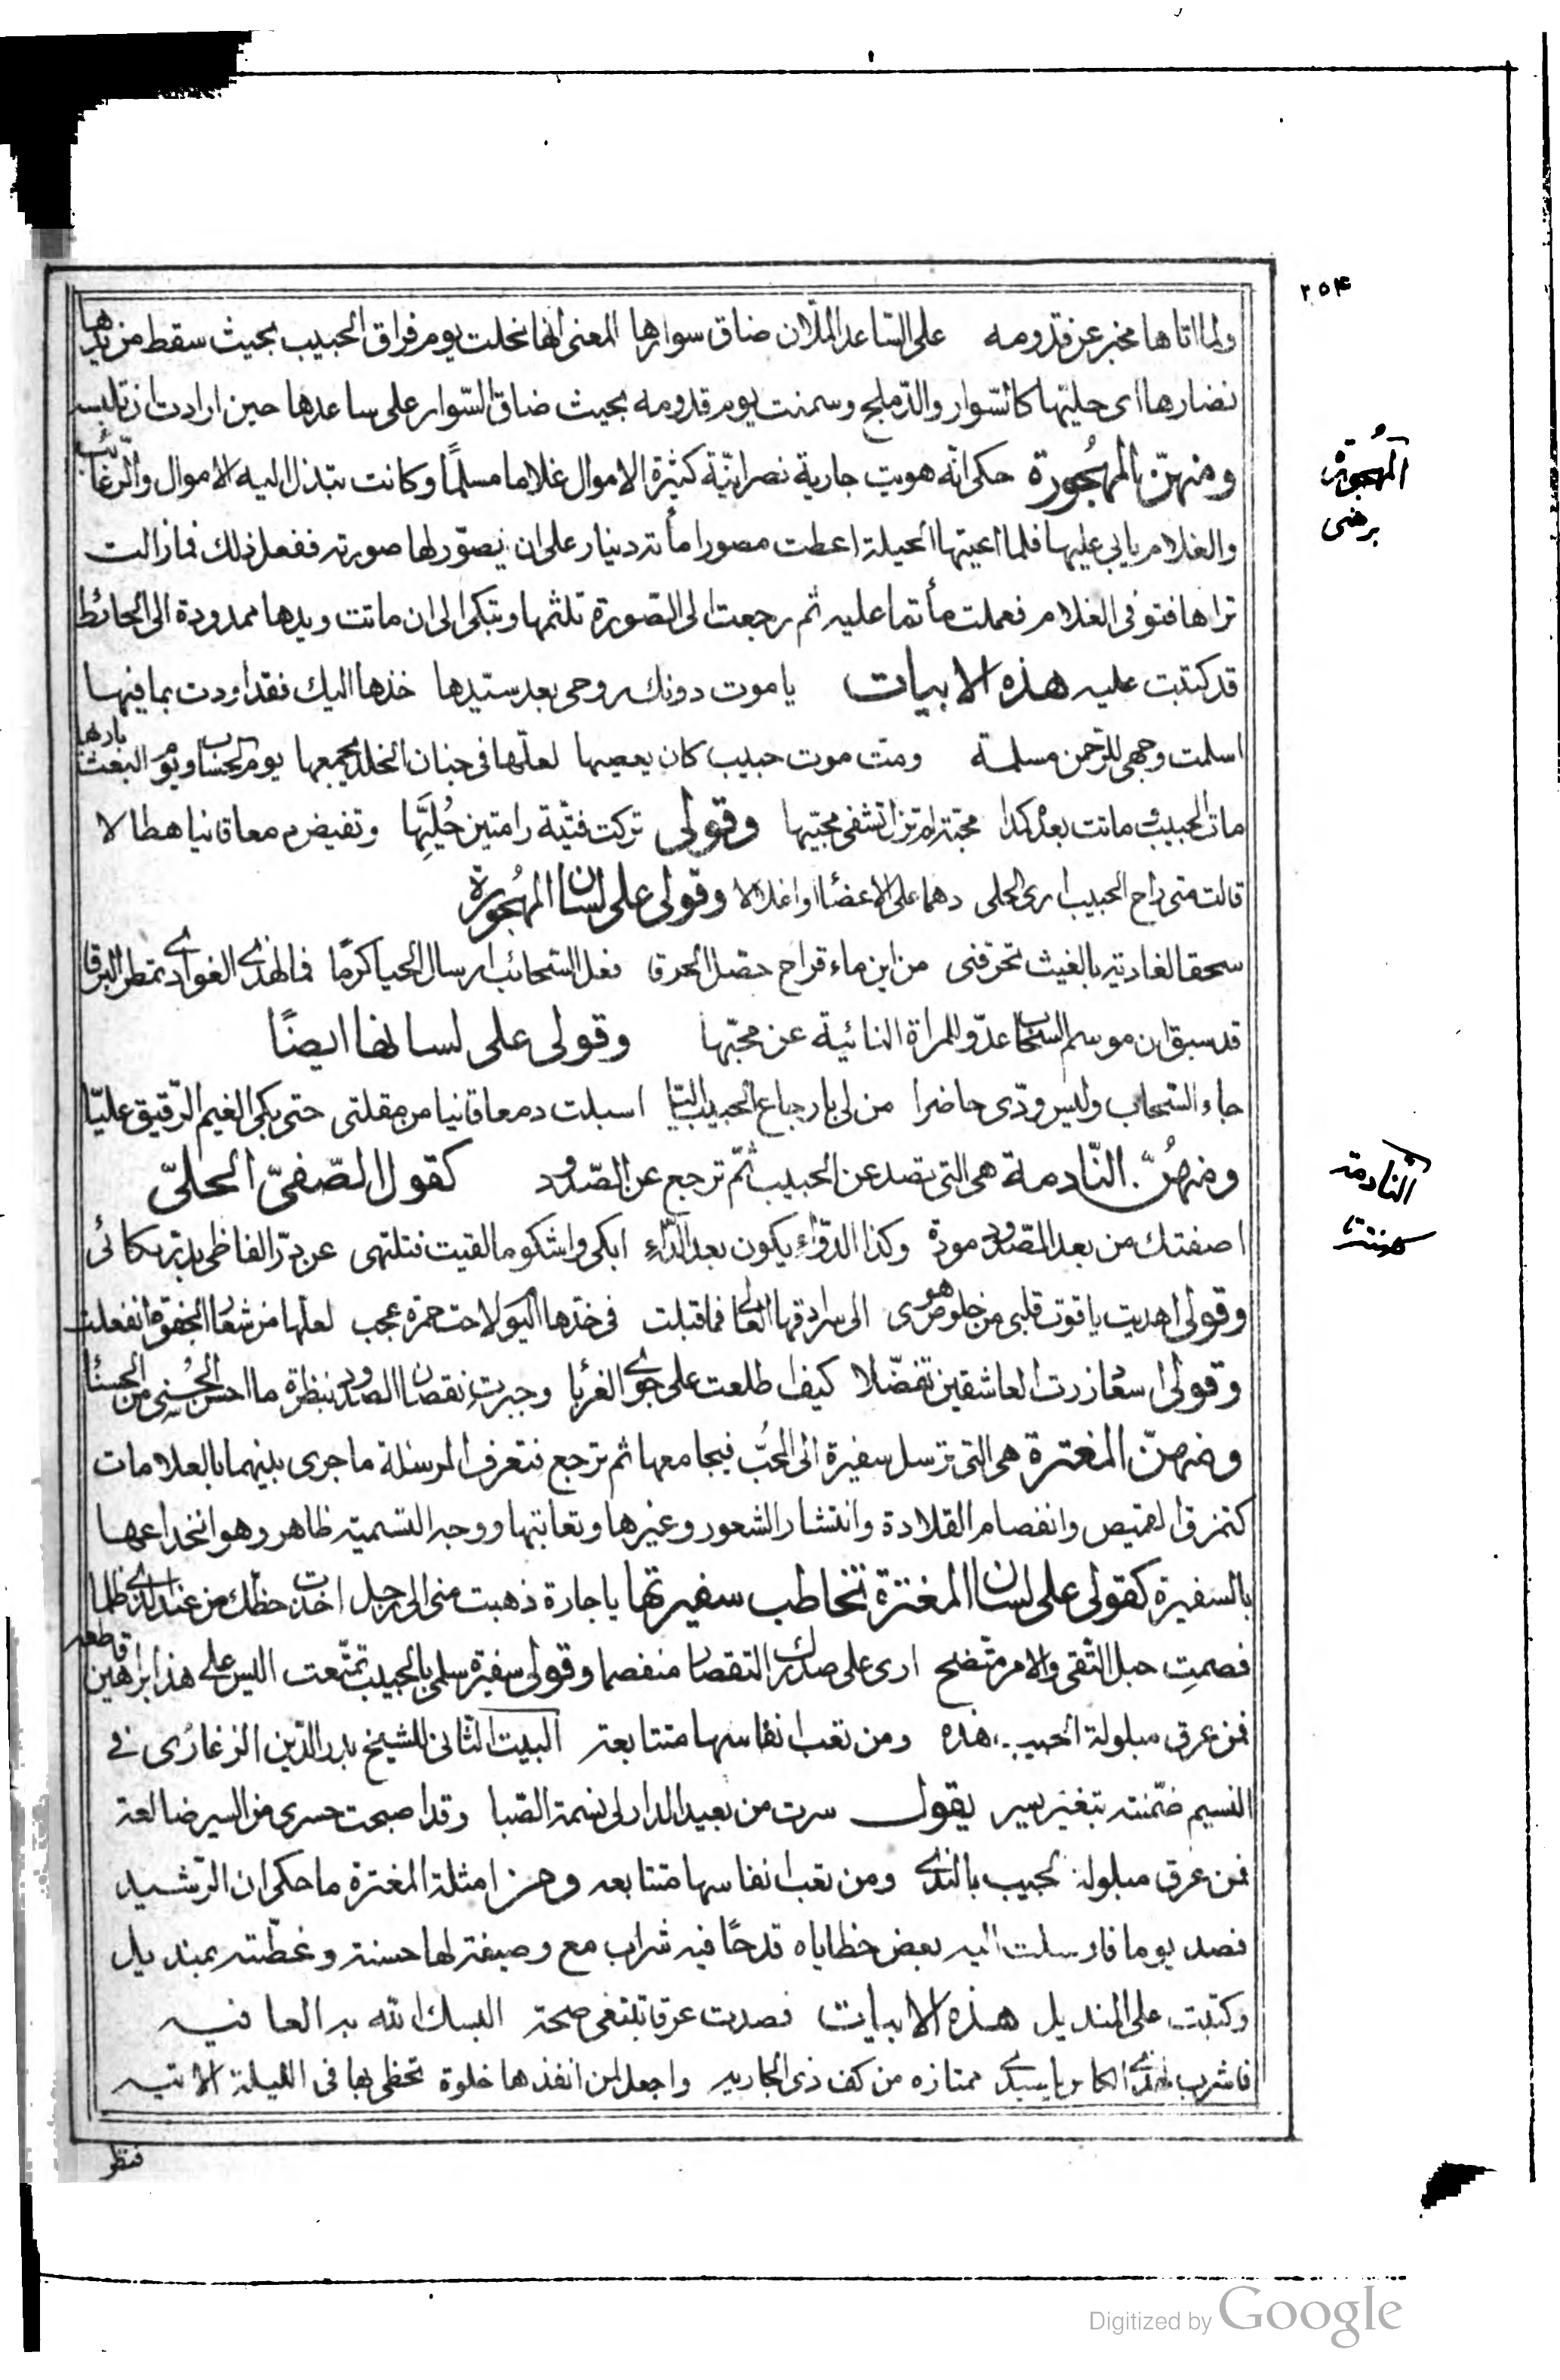 ٢٥٤
ولما اتاها مخبر عن قدومه على الساعد الملآن ضاق سوارها المعنى انها نحلت يوم فراق الحبيب بحيث سقط من يدها
نضارها اى حليتها كالسّوار والدّملج وسمنت يوم قدومه بحيث ضاق السّوار على ساعدها حين ارادت ان تلبسه
ومنهنّ المهجُورة حكى انّه هويت جارية نصرانيّة كثيرة الاموال غلاما مسلمًا وكانت تبذل اليه الاموال والرّغائب
المهُجورة
برهنى
والغلام يابى عليها فلما اعيتها الحيلة اعطت مصورا مأته دينار على ان يصوّر لها صورته ففعل ذلك فما زالت
تراها فتوفى الغلام فعملت مأتما عليه ثم رجعت الى الصورة تلثمها وتبكى الى ان ماتت ويدها ممدودة الى الحائط
قد كتبت عليه هذه الابيات ياموت دونك روحى بعد سيدها خذها اليك فقد اودت بما فيها
اسلمت وجهى للرّحمن مسلمة ومت موت حبيب كان يعصيها لعلّها فى جنان الخلد يجمعها يوم الحساب ويوم البعث باريها
مات الحبيب وماتت بعده كمدا محبّة لم تزل تشفى محبّيها وقولى تركت فتيّة رامتين حُليّها وتفيض دمعا قانيا هطالا
قالت متى راح الحبيب ارى الحلى دهما على الاعضاء او اغلالا وقولى على لسان المهجُورة
سحقا لغادية بالغيث تحرقنى من اين ماء قراح حصل الحرقا فعل السّحائب ارسال الحيا كرمًا فما لهذى الغوادى تمطر البرقا
قد سبق ان موسم السحاب عدوّ للمراة النائية عن محبّها وقولى على لسانها ايضًا
جاء السّحاب وليس ودّى حاضرا من لى بارجاع الحبيب اليّا اسبلت دمعا قانيا من مقلتى حتى بكى الغيم الرّقيق عليّا
ومنهُنّ النّادمة هى التى تصد عن الحبيب ثمّ ترجع عن الصّدود كقول الصّفىّ الحلىّ
النّادمة
اصفتك من بعد الصّدود مودة وكذا الدّواء يكون بعد الدّاء ابكى واشكو ما لقيت فتلتهى عن درّ الفاظى بدرّ بكائى
وقولى اهديت ياقوت قلبى من خلوص هوى الى سرادقها العالى فما قبلت فى خدّها اليوم لاحت حمرة عجب لعلّها من شعار الجفوة انفعلت
وقولى اسعاد زرت العاشقين تفضّلا كيف اطلعت على جوى الغربا وجبرت نقصان الصدود بنظرة ما احسن الحُسنى من الحسنا
ومنهنّ المغترة هى التى ترسل سفيرة الى المحُبّ فيجامعها ثم ترجع فتعرف المرسلة ما جرى بينهما بالعلامات
كتمزق القميص وانفصام القلادة وانتشار الشعور وغيرها وتعاتبها ووجه التسمية ظاهر وهو انخداعها
بالسفيرة كقولى على لسان المغترة تخاطب سفيرتها ياجارة ذهبت منى الى رجل اخذت حظك من عند الذى ظلما
فصمتِ حبل التّقى والامر متّضح ارى على صدرك التقصار منفصما وقولى سفيرة سلمى بالحبيب تمتّعت اليس على هذا براهين قاطعه
فمن عرق مبلولة الجيب هذه ومن تعب انفاسها متتابعة البيت الثّانى للشيخ بدر الدّين الزغارى فى
النسيم ضمّنته بتغير يسير يقول سرت من بعيد الدار لى نسمة الصّبا وقد اصبحت حسرى من السير ضالعة
فمن عرق مبلولة الجيب بالندى ومن تعب انفاسها متتابعه ومن امثلة المغترة ما حكى ان الرّشيد
فصد يوما فارسلت اليه بعض حظاياه قدحًا فيه شراب مع وصيفة لها حسنة وغطّته بمنديل
وكتبت على المنديل هذه الابيات فصدت عرقا تبتغى صحة البسك الله به العافيه
فاشرب بهذى الكاس ياسيدى ممتازه من كف ذى الجاريه واجعل لمن انفذها خلوة تحظى بها فى الليلة الاتيه
فنظر
Digitized by Google